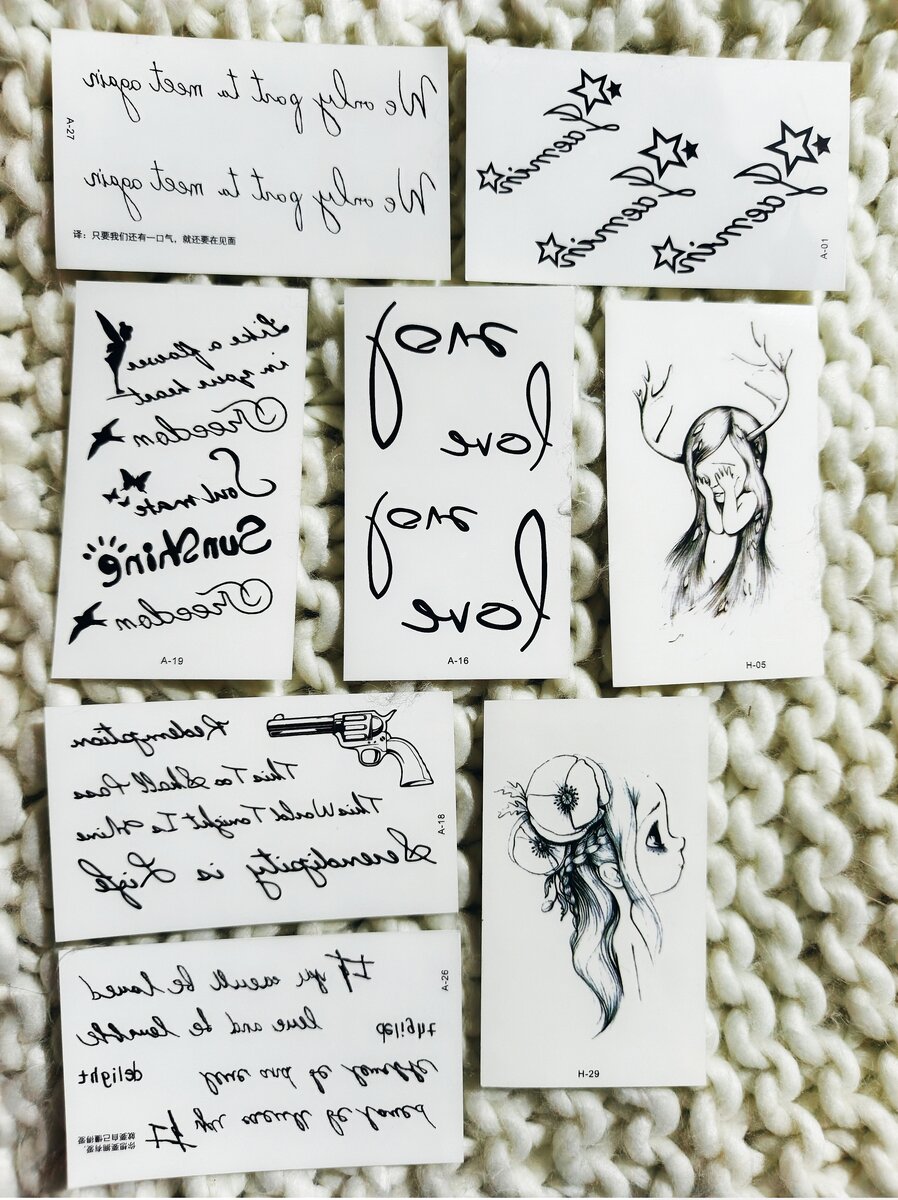 We only part to meet again
We only part to meet again
A-27
译：只要我们还有一口气，就还要在见面
A-01
Like a flower
in your heart
Freedom
Soul mate
Sunshine
Freedom
A-19
love
love
love
love
A-16
H-05
Redemption
This Too Shall Pass
This World Tonight Is Mine
Serendipity is Life
A-18
If you would be loved
love and be lovable
delight
delight
love and be lovable
If you would be loved
A-26
H-29